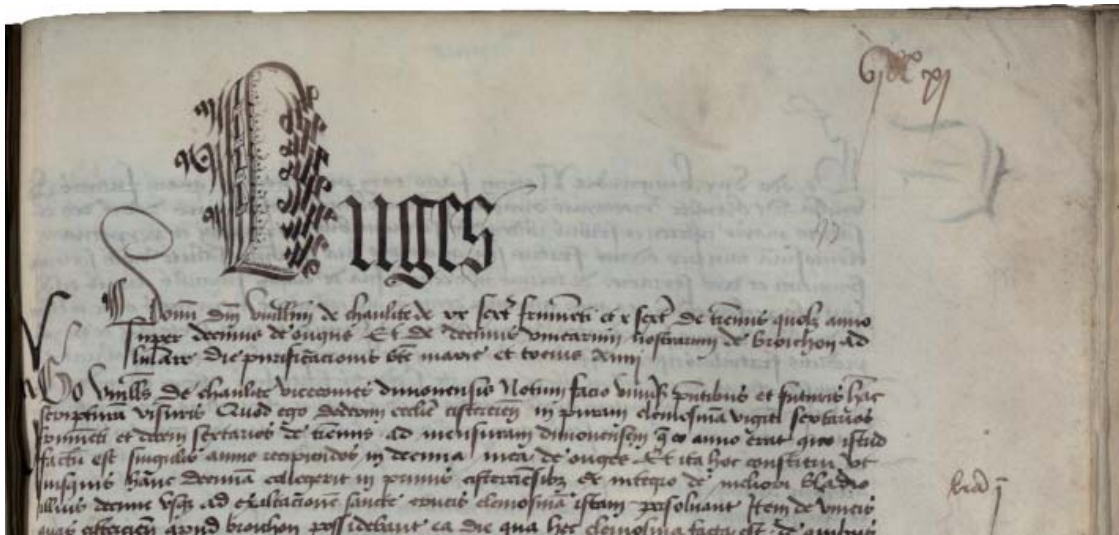 Ouges
Donum dni Willmi de chanlite de xx sext frumeti et x sext de tremis quolz anno
super decimis de ouges Et de decimis vinearum nostrarum de broichon ad
lulare die purificacionis bte marie et tocius Anni
Ego Willms de chanlite vicecomes divionensis Notum facio univs pntibus et futuris hac
scripturam visuris Quod ego dederim ecclie cistercien in puram elemosina viginti sextarios
frumeti et decem sextarios de tremis ad mensuram divionensem q eo anno erat quo istud
factu est singulis annis recipiendos in decima mea de ouges Et ita hoc constitui ut
quisquis hanc decimam collegerit in primis cisterciesibz ex integro de meliori bladio
illius decime usqz ad exaltacionem sancte crucis elemosinam istam persoluant Item de vineis
quas cistercien apud broichon possidebant ea die qua hec elemosina facta est de quibus